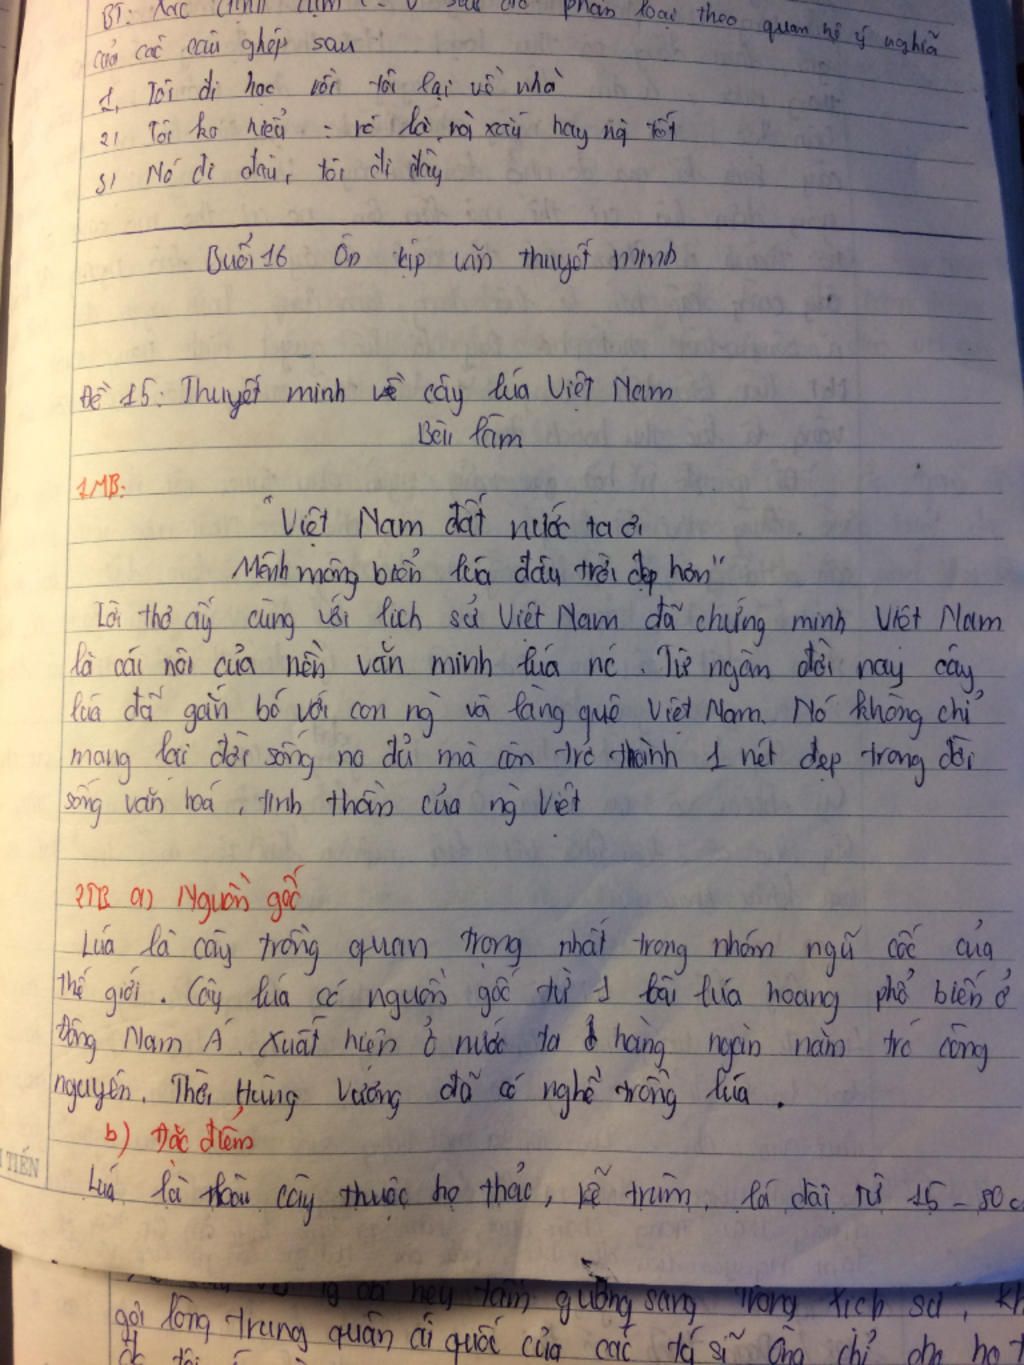 BT: Xác định cụm C-V sau đó phân loại theo quan hệ ý nghĩa
của các câu ghép sau
1, Tôi đi học rồi tôi lại về nhà
2, Tôi ko hiểu : rõ là nói xấu hay nói tốt
3, Nó đi đâu, tôi đi đấy
Buổi 16 Ôn tập văn thuyết minh
Đề 15: Thuyết minh về cây lúa Việt Nam
Bài làm
1MB:
"Việt Nam đất nước ta ơi
Mênh mông biển lúa đâu trời đẹp hơn"
Lời thơ ấy cùng với lịch sử Việt Nam đã chứng minh Việt Nam
là cái nôi của nền văn minh lúa nc. Từ ngàn đời nay cây
lúa đã gắn bó với con ng và làng quê Việt Nam. Nó không chỉ
mang lại đời sống no đủ mà còn trở thành 1 nét đẹp trong đời
sống văn hoá, tinh thần của ng Việt
2TB a) Nguồn gốc
Lúa là cây trồng quan trọng nhất trong nhóm ngũ cốc của
thế giới. Cây lúa có nguồn gốc từ 1 loài lúa hoang phổ biến ở
Đông Nam Á. Xuất hiện ở nước ta hàng ngàn năm trc công
nguyên. Thời Hùng Vương đã có nghề trồng lúa.
b) Đặc điểm
TIẾN
Lúa là thân cây thuộc họ thảo, rễ chùm, lá dài từ 15 - 50c
gời lòng trung quân ái quốc của các tá sĩ